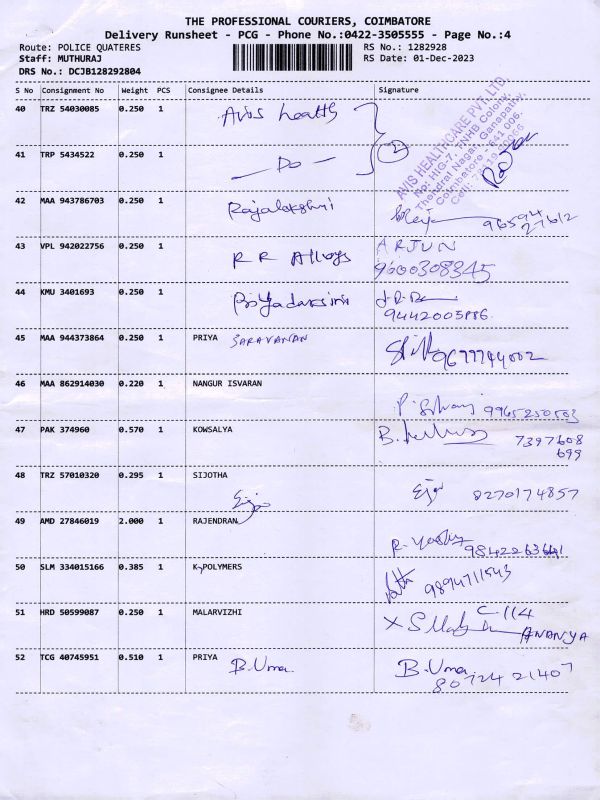 THE PROFESSIONAL COURIERS, COIMBATORE
Delivery Runsheet - PCG - Phone No.:0422-3505555 - Page No.:4
Route: POLICE QUATERES
RS No.: 1282928
Staff: MUTHURAJ
RS Date: 01-Dec-2023
DRS No.: DCJB128292804
S No Consignment No Weight PCS Consignee Details Signature
40 TRZ 54030085 0.250 1 Avis health
AVIS HEALTHCARE PVT. LTD.
No: HIG-7, TNHB Colony,
Thendral Nagar, Ganapathy,
Coimbatore - 641 006.
41 TRP 5434522 0.250 1 — Do — 2
42 MAA 943786703 0.250 1 Rajalakshmi
96594
27612
43 VPL 942022756 0.250 1 R R Alloys ARJUN
9600308345
44 KMU 3401693 0.250 1 Priyadarsini
9442005886.
45 MAA 944373864 0.250 1 PRIYA SARAVANAN 9677744002
46 MAA 862914030 0.220 1 NANGUR ISVARAN
9965250503
47 PAK 374960 0.570 1 KOWSALYA
7397608
699
48 TRZ 57010320 0.295 1 SIJOTHA
8270174857
49 AMD 27846019 2.000 1 RAJENDRAN
9842263641
50 SLM 334015166 0.385 1 K POLYMERS
9894711543
51 HRD 50599087 0.250 1 MALARVIZHI
C-114
ANANYA
52 TCG 40745951 0.510 1 PRIYA B.Uma B.Uma
80724 21407